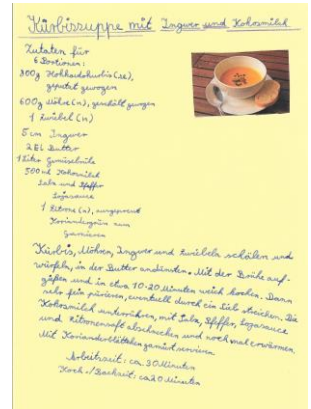 Kürbissuppe mit Ingwer und Kokosmilch
Zutaten für
6 Portionen:
800g Hokkaidokürbis(se),
geputzt gewogen
600g Möhre(n), geschält gewogen
1 Zwiebel(n)
5 cm Ingwer
2 EL Butter
1 Liter Gemüsebrühe
500 ml Kokosmilch
Salz und Pfeffer
Sojasauce
1 Zitrone(n), ausgepresst
Koriandergrün zum
Garnieren
Kürbis, Möhren, Ingwer und Zwiebeln schälen und
würfeln, in der Butter andünsten. Mit der Brühe auf-
gießen und in etwa 10-20 Minuten weich kochen. Dann
sehr fein pürieren, eventuell durch ein Sieb streichen. Die
Kokosmilch unterrühren, mit Salz, Pfeffer, Sojasauce
und Zitronensaft abschmecken und noch mal erwärmen.
Mit Korianderblättchen garniert servieren.
Arbeitszeit: ca. 30 Minuten
Koch-/Backzeit: ca. 20 Minuten